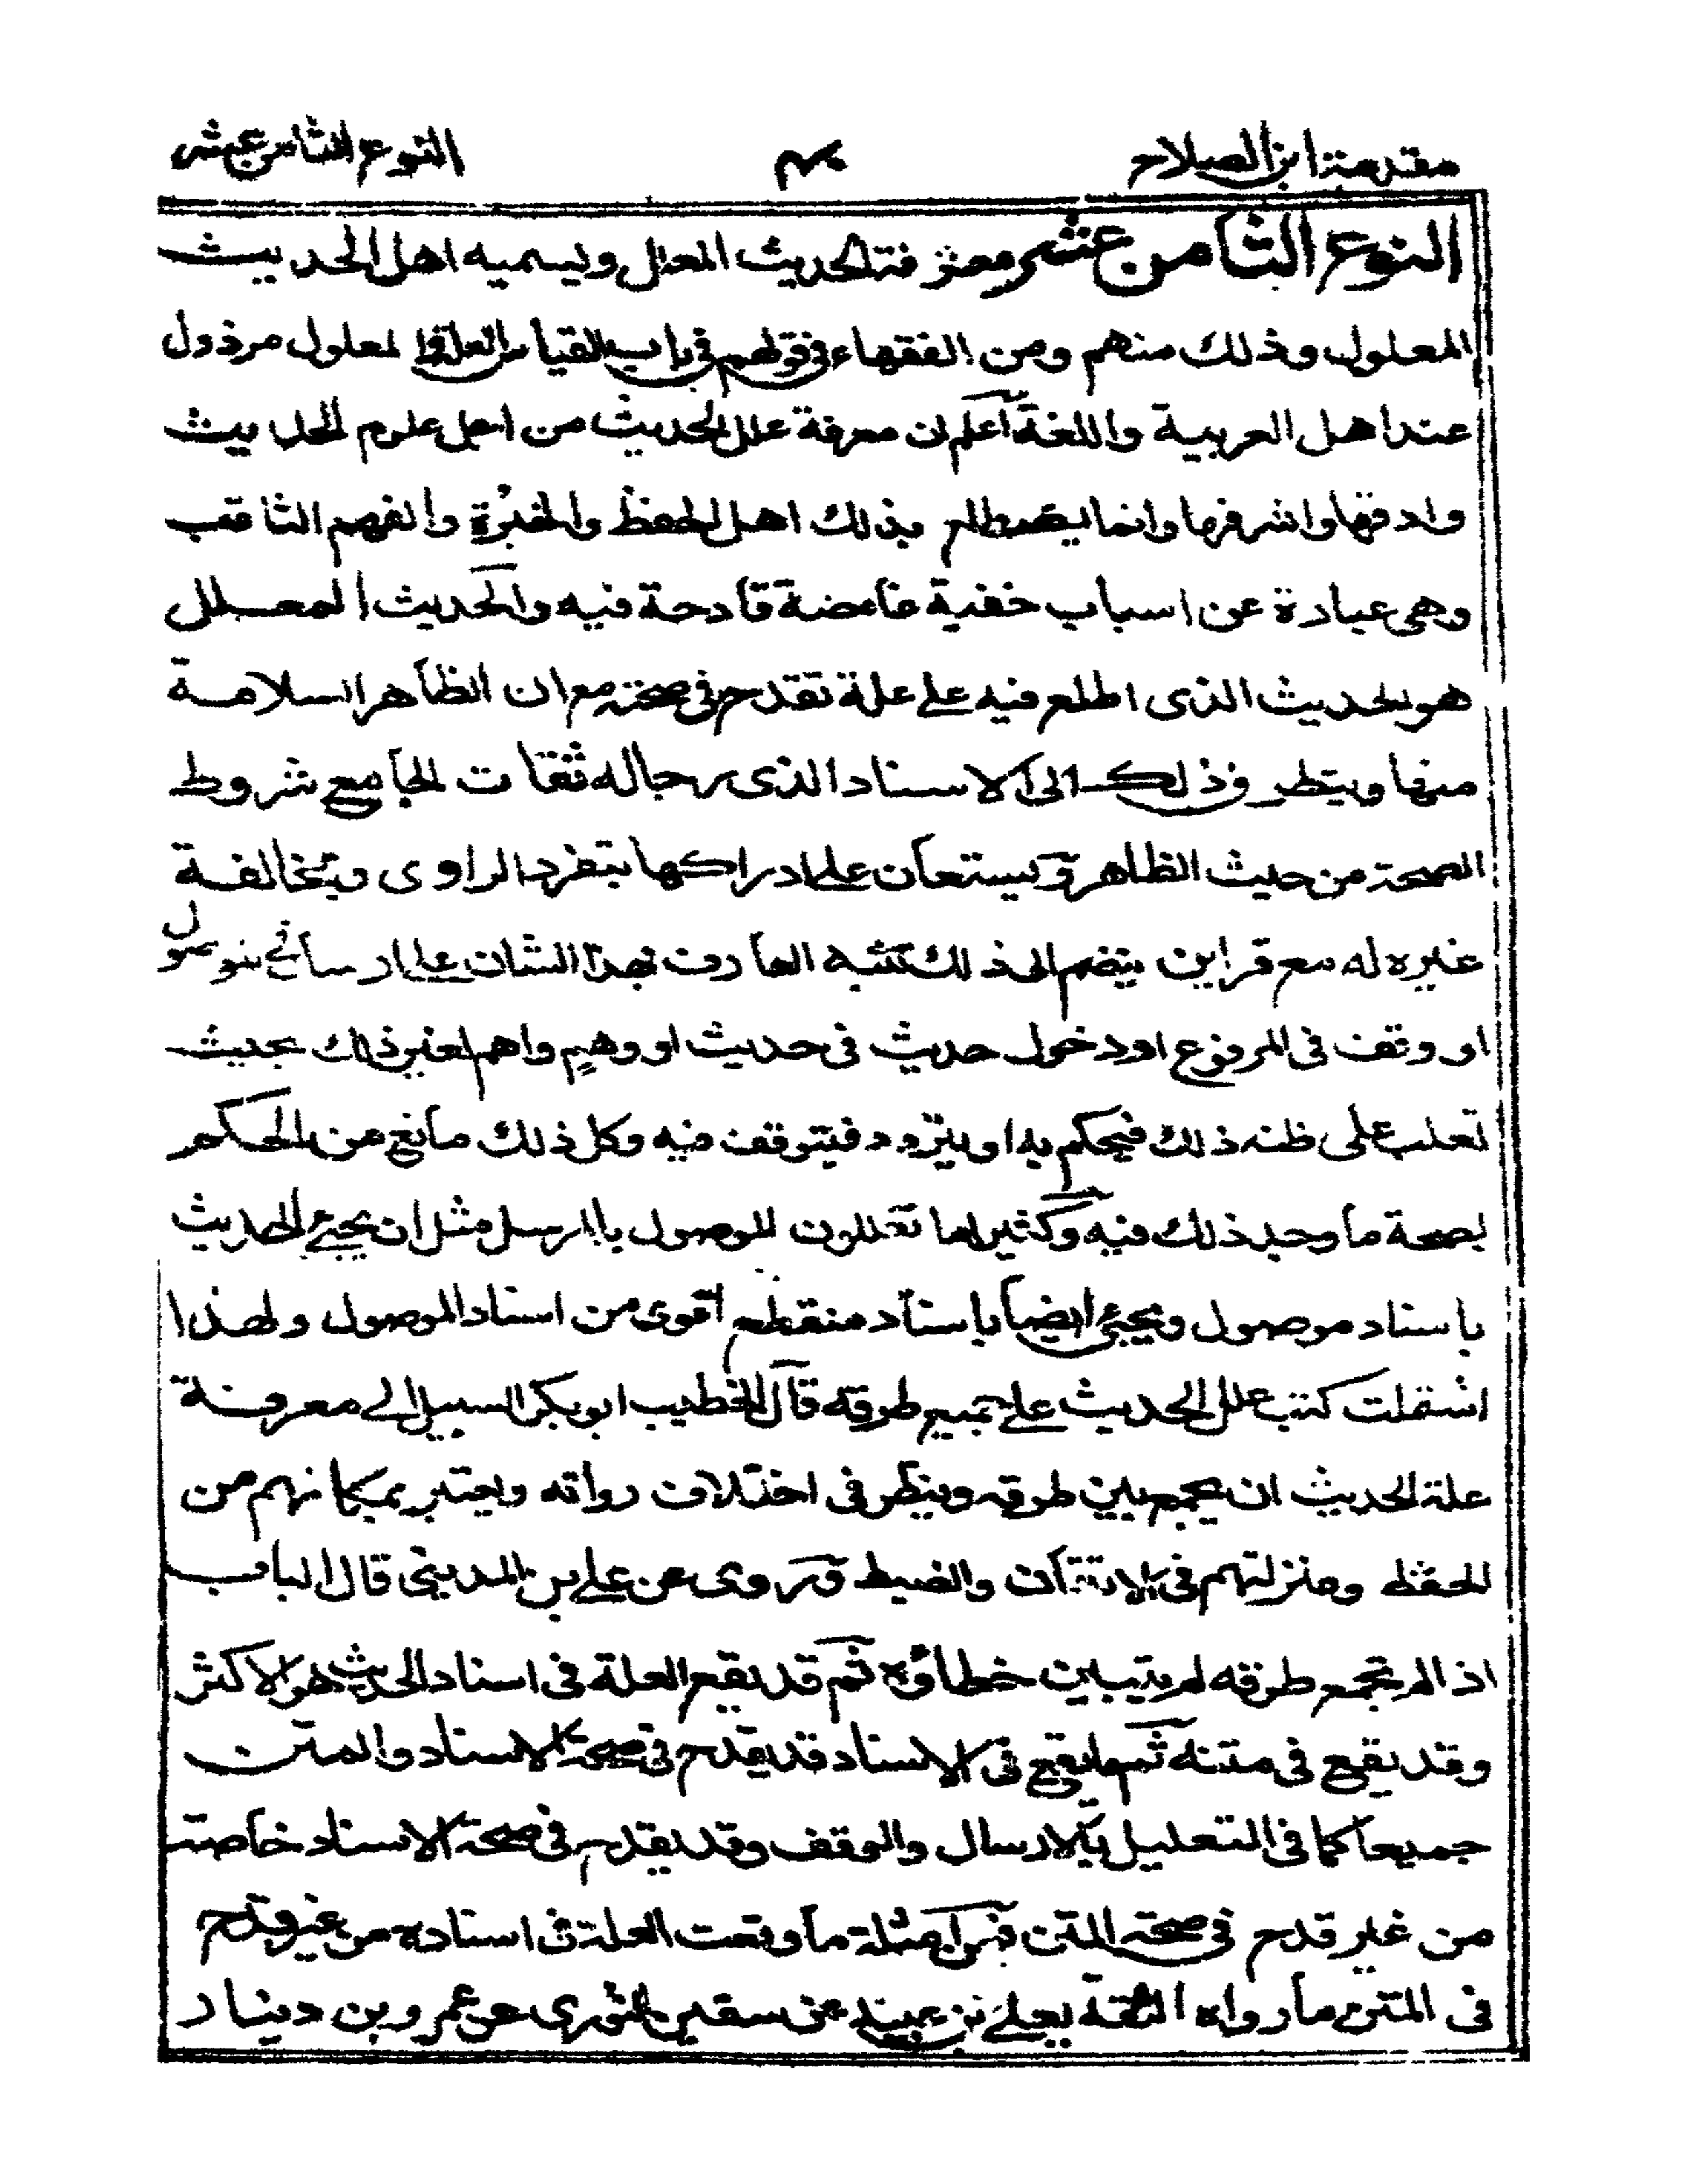 مقدمة ابن الصلاح
النوع الثامن عشر
النوع الثامن عشر معرفة الحديث المعلل ويسميه اهل الحديث
المعلول وذلك منهم ومن الفقهاء في قولهم في باب القياس العلة والمعلول مرذول
عند اهل العربية واللغة اعلم ان معرفة علل الحديث من اجل علوم الحديث
وادقها واشرفها وانما يضطلع بذلك اهل الحفظ والخبرة والفهم الثاقب
وهى عبارة عن اسباب خفية غامضة قادحة فيه والحديث المعلل
هو الحديث الذى اطلع فيه على علة تقدح فى صحته مع ان الظاهر السلامة
منها ويتطرق ذلك الى الاسناد الذى رجاله ثقات الجامع شروط
الصحة من حيث الظاهر ويستعان على ادراكها بتفرد الراوى وبمخالفة
غيره له مع قراين ينضم الى ذلك تنبه العارف بهذا الشان على ارسال في موصول
او وقف فى المرفوع او دخول حديث فى حديث او وهم واهم لغير ذلك بحيث
تغلب على ظنه ذلك فيحكم به او يتردد فيتوقف فيه وكل ذلك مانع من الحكم
بصحة ما وجد ذلك فيه وكثيرا ما تعللون الموصول بالمرسل مثل ان يجيئ الحديث
باسناد موصول ويجيئ ايضا باسناد منقطع اقوى من اسناد الموصول ولهذا
اشتملت كتب علل الحديث على جميع طرقه قال الخطيب ابو بكر السبيل الى معرفة
علة الحديث ان يجمع بين طرقه وينظر فى اختلاف رواته ويعتبر بمكانهم من
الحفظ ومنزلتهم فى الاتقان والضبط وروى عن على بن المدينى قال الباب
اذا لم تجمع طرقه لم يتبين خطاؤه ثم قد يقع العلة فى اسناد الحديث هو الاكثر
وقد يقع فى متنه ثم ما يقع فى الاسناد قد يقدح فى صحة الاسناد والمتن
جميعا كما فى التعليل بالارسال والوقف وقد يقدح فى صحة الاسناد خاصة
من غير قدح فى صحة المتن فمن امثلة ما وقعت العلة فى اسناده من غير قدح
فى المتن ما رواه الثقة يعلى بن عبيد عن سفين الثورى عن عمرو بن دينار